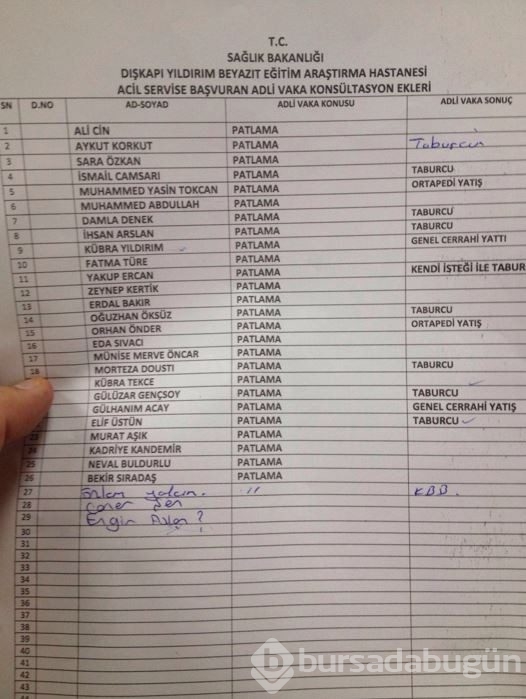 T.C.
SAĞLIK BAKANLIĞI
DIŞKAPI YILDIRIM BEYAZIT EĞİTİM ARAŞTIRMA HASTANESİ
ACİL SERVİSE BAŞVURAN ADLİ VAKA KONSÜLTASYON EKLERİ
SN D.NO AD-SOYAD ADLİ VAKA KONUSU ADLİ VAKA SONUÇ
1 ALİ CİN PATLAMA
2 AYKUT KORKUT PATLAMA Taburcu
3 SARA ÖZKAN PATLAMA
4 İSMAİL CAMSARI PATLAMA TABURCU
5 MUHAMMED YASİN TOKCAN PATLAMA ORTAPEDİ YATIŞ
6 MUHAMMED ABDULLAH PATLAMA
7 DAMLA DENEK PATLAMA TABURCU
8 İHSAN ARSLAN PATLAMA TABURCU
9 KÜBRA YILDIRIM PATLAMA GENEL CERRAHİ YATTI
10 FATMA TÜRE PATLAMA
11 YAKUP ERCAN PATLAMA KENDİ İSTEĞİ İLE TABUR
12 ZEYNEP KERTİK PATLAMA
13 ERDAL BAKIR PATLAMA
14 OĞUZHAN ÖKSÜZ PATLAMA TABURCU
15 ORHAN ÖNDER PATLAMA ORTAPEDİ YATIŞ
16 EDA SIVACI PATLAMA
17 MÜNİSE MERVE ÖNCAR PATLAMA
18 MORTEZA DOUSTI PATLAMA TABURCU
KÜBRA TEKCE PATLAMA
GÜLÜZAR GENÇSOY PATLAMA TABURCU
GÜLHANIM ACAY PATLAMA GENEL CERRAHİ YATIŞ
ELİF ÜSTÜN PATLAMA TABURCU
23 MURAT AŞIK PATLAMA
24 KADRİYE KANDEMİR PATLAMA
25 NEVAL BULDURLU PATLAMA
26 BEKİR SIRADAŞ PATLAMA
27 yalçın. " KBB.
28 Caner Şen
29 Engin Aslan?
30
31
32
33
34
35
36
37
38
39
40
41
42
43
bursadabugün